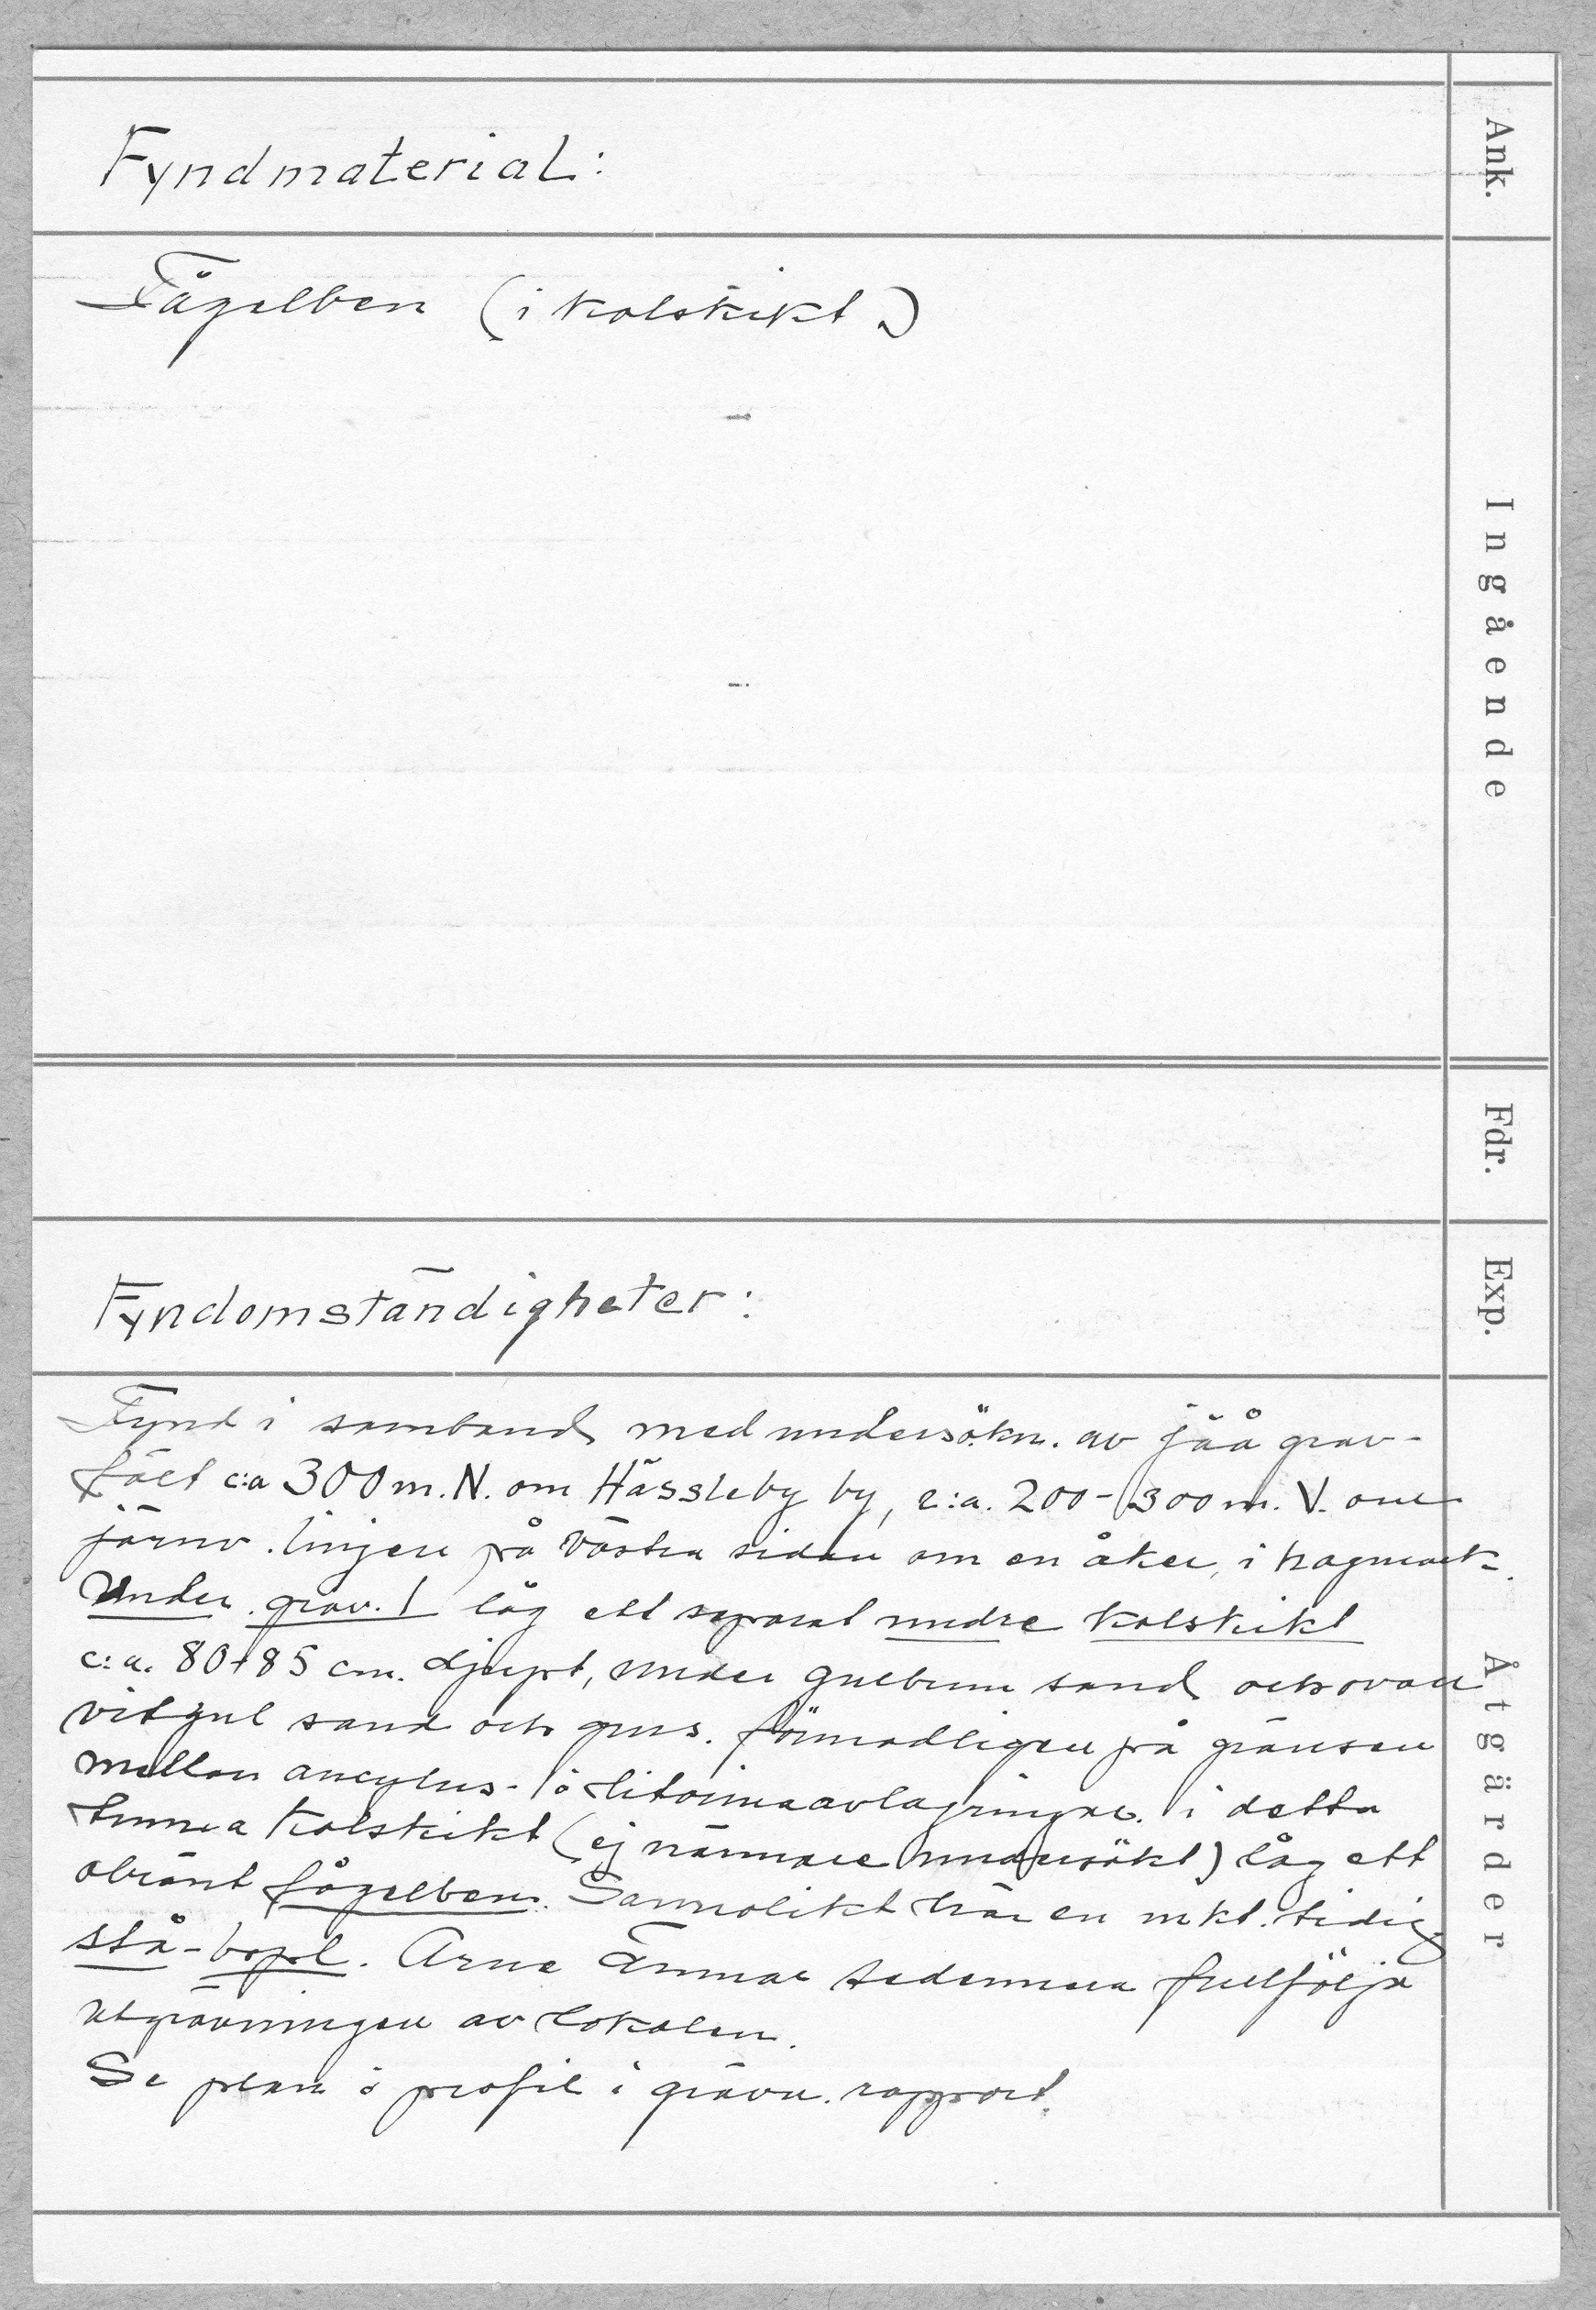 Fyndmaterial:
Ank.
Fågelben (i kolskikt.)
Ingående
Fdr.
Fyndomständigheter:
Exp.
Åtgärder
Fynd i samband med undersökn. av jäå grav-
fält c:a 300 m. N. om Hässleby by, c:a. 200-300 m. V. om
järnv. linjen på västra sidan om en åker, i hagmark.
Under grav. 1 låg ett separat undre kolskikt
c:a. 80+85 cm. djupt, under gulbrun sand och ovan
vitgul sand och grus. förmodligen på gränsen
mellan ancylus- o litorinaavlagringar. i detta
tunna kolskikt (ej närmare undersökt) låg ett
obränt fågelben. Sannolikt här en mkt. tidig
stå-bopl. Arne Ämnar sedermera fullfölja
utgrävningen av lokalen.
Se plan o profil i grävn. rapport.